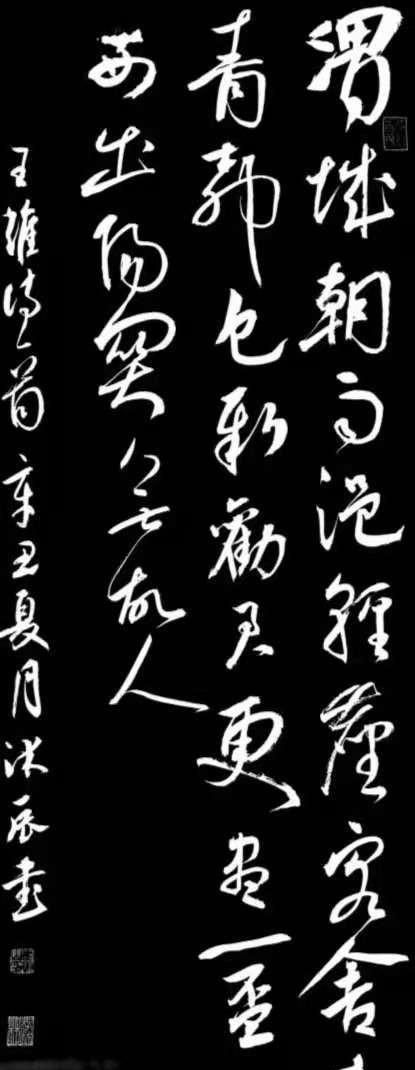 渭城朝雨浥輕塵客舍
青柳色新勸君更盡一盃
西出陽關無故人
王維詩一首辛丑夏月辰書